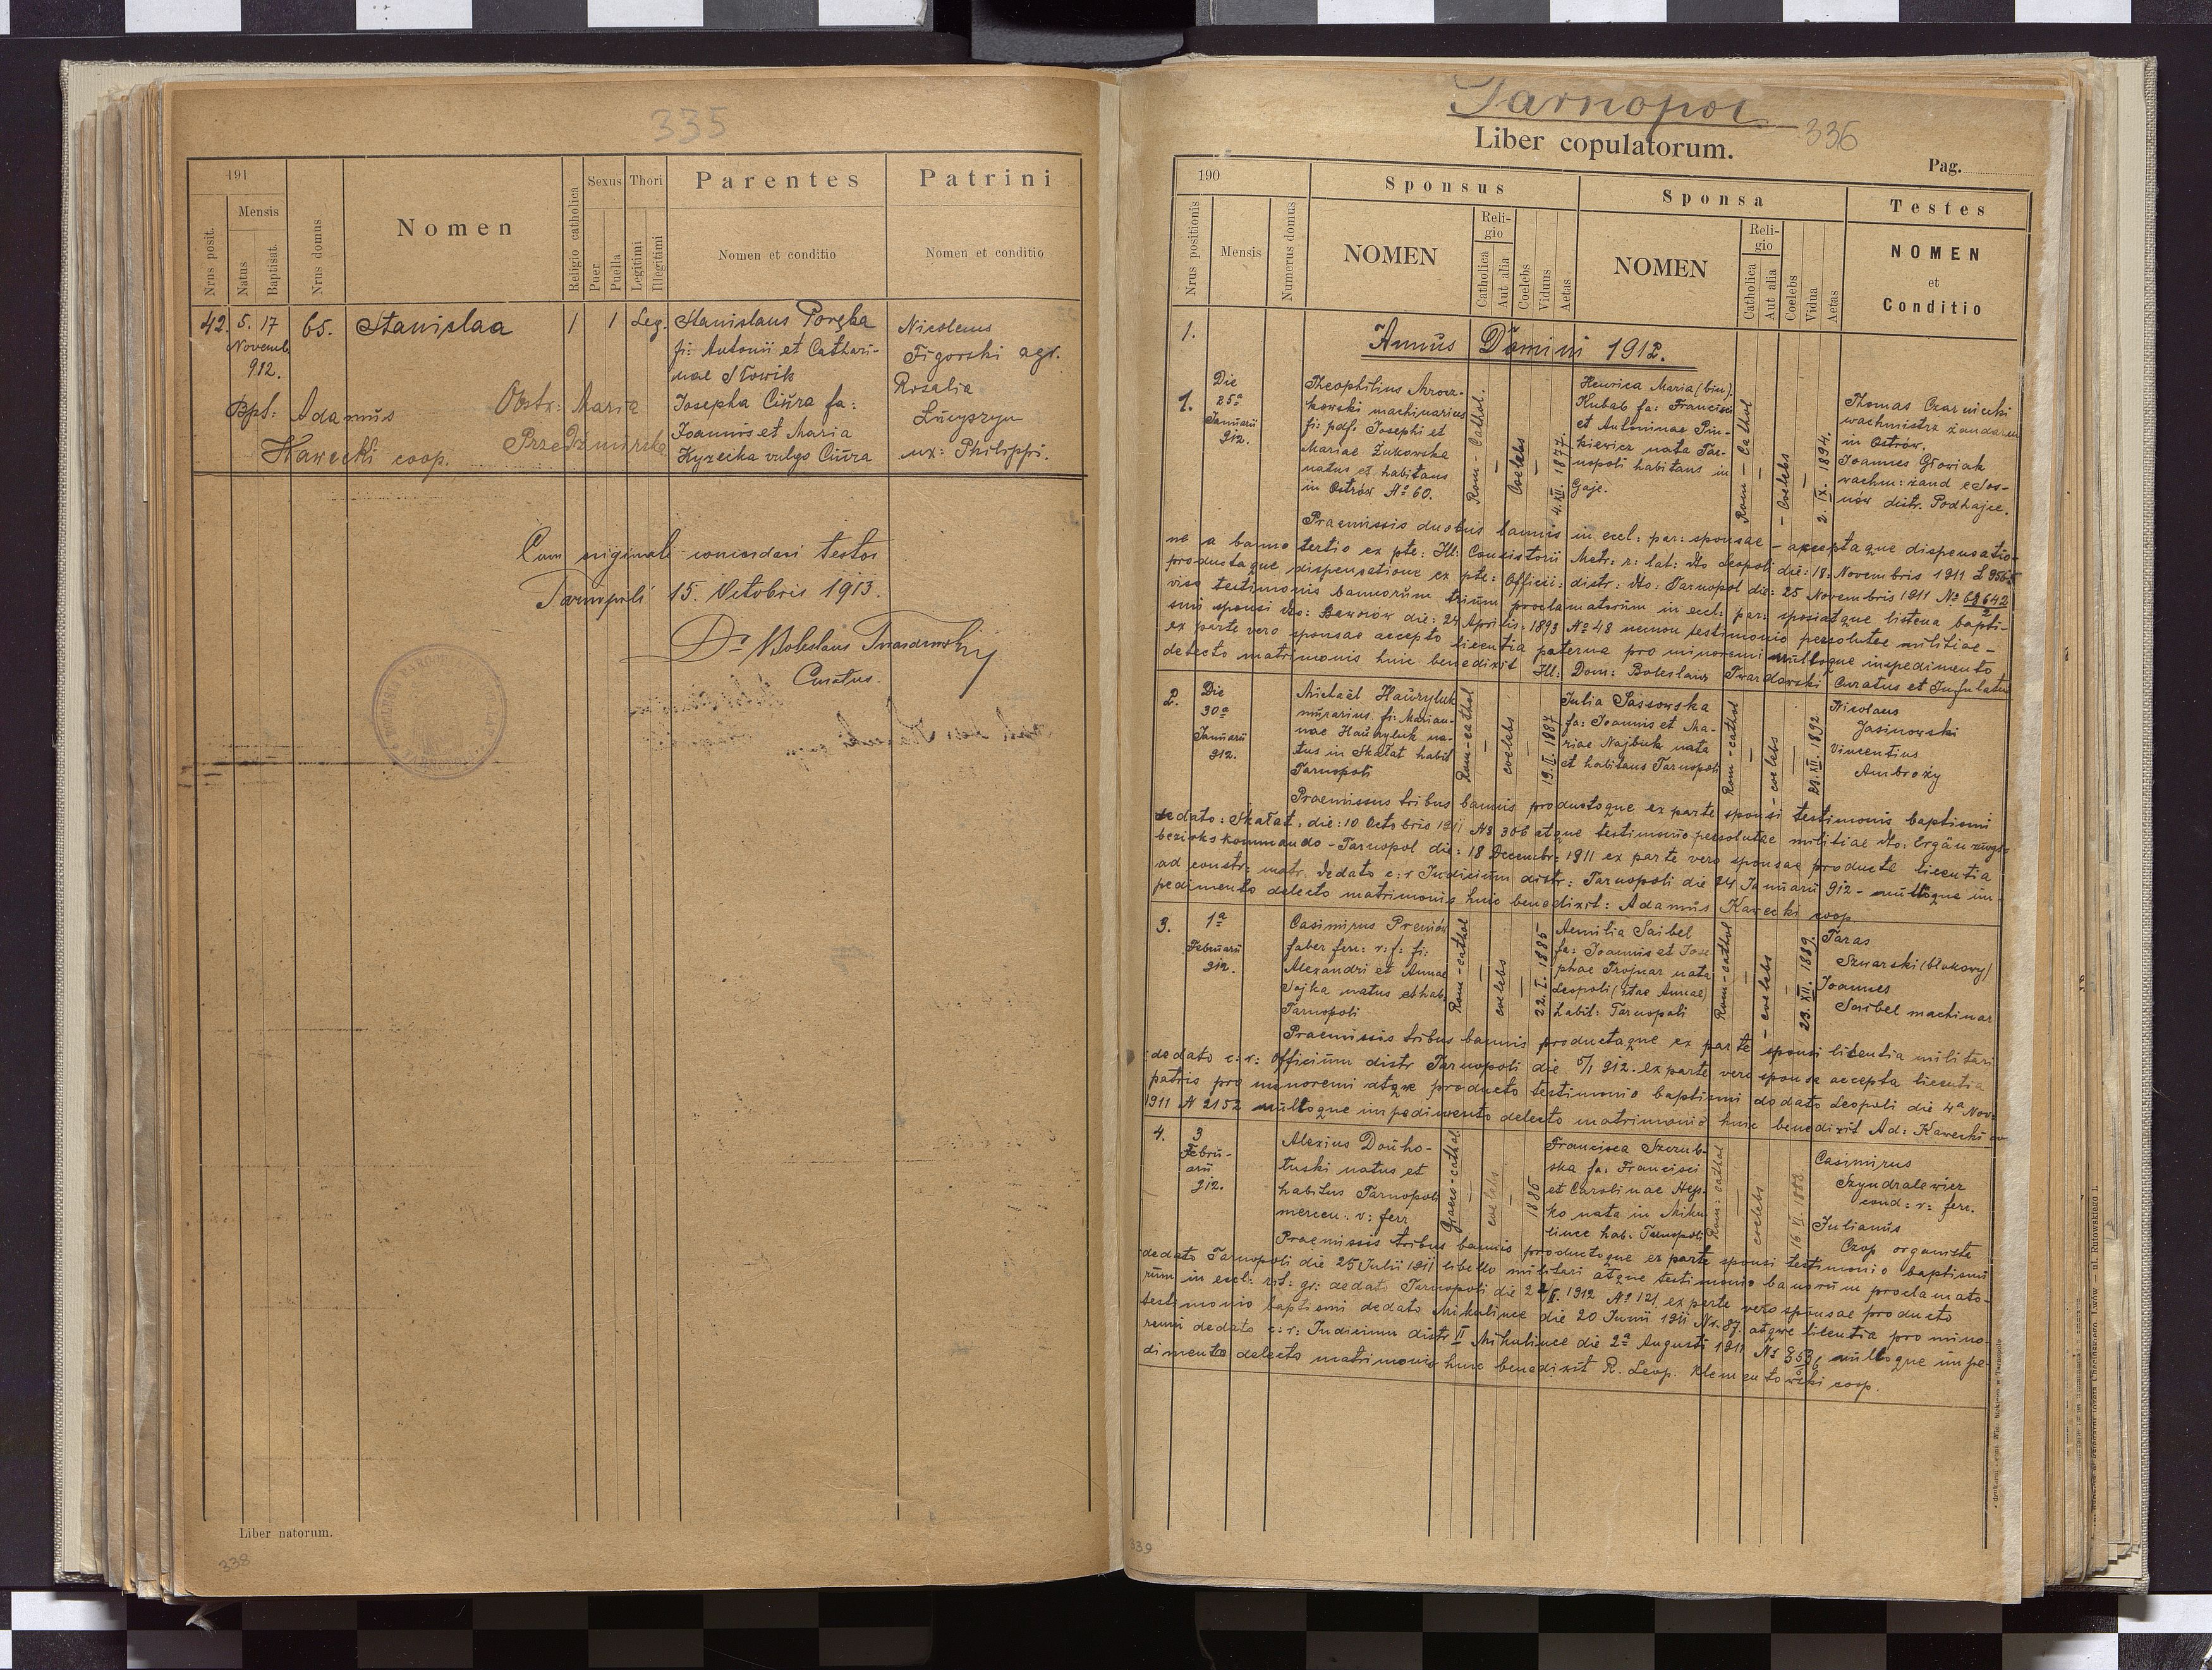 335
191
Nrus posit.
Mensis
Natus
Baptisat.
Nrus domus
Nomen
Religio catholica
Sexus
Puer
Puella
Thori
Legitimi
Illegitimi
Parentes
Nomen et conditio
Patrini
Nomen et conditio
42.
5. 17
Novemb
912.
65.
Stanislaa
1
1
Leg.
Stanislaus Poręba
fi: Antonii et Cathari-
nae Słowik
Josepha Ciura fa:
Joannis et Maria
Kyzecka vulgo Ciura
Nicolaus
Figorski agr.
Rosalia
Łucyszyn
ux: Philippi.
Bpt: Adamus
Kawecki coop.
Obstr: Maria
Przedzimirska
Cum originali concordari testor
Tarnopoli 15. Octobris 1913.
Dr Boleslaus Twardowski
Curatus.
Liber natorum.
338
Tarnopol
336
Liber copulatorum.
Pag.
190
Nrus positionis
Mensis
Numerus domus
Sponsus
NOMEN
Religio
Catholica
Aut alia
Coelebs
Viduus
Aetas
Sponsa
NOMEN
Religio
Catholica
Aut alia
Coelebs
Vidua
Aetas
Testes
NOMEN
et
Conditio
1.
Annus Domini 1912.
1.
Die
25a
Januarii
912.
Theophilius Mrocz-
kowski machinarius
fi: pdf. Josephi et
Mariae Żukowska
natus et habitans
in Ostrów No 60.
Rom-Cathol.
Coelebs
4. XII. 1877.
Henrica Maria (bin)
Kubab fa: Francisci
et Antoninae Pin-
kiewicz nata Tar-
nopoli habitans in
Gaje.
Rom-Cathol
Coelebs
2. IX. 1894.
Thomas Czarniecki
wachmistrz żandarm
in Ostrów.
Joannes Głowiak
wachm: żand e Sos-
nów distr. Podhajce.
Praemissis duobus bannis in eccl: par: sponsae - acceptaque dispensatio-
ne a banno tertio ex pte: Ill: Consistorii Metr: r: lat: dto Leopoli die: 18. Novembris 1911 L 956
productaque dispensatione ex pte: Officii: distr: dto: Tarnopol die: 25 Novembris 1911 No 69642/2
viso testimonio bannorum trium proclamatorum in eccl: par: sponsi atque listena bapti-
smi sponsi dto: Baworów die: 24 Aprilis: 1893 No 48 necnon testimonio persolutae militiae -
ex parte vero sponsae accepto licentia paterna pro minoremi nulloque impedimento
detecto matrimonio huic benedixit Ill: Dom: Boleslaus Twardowski Curatus et Infulatus
2.
Die
30a
Januarii
912.
Michaël Hauryluk
murarius fi: Marian-
nae Hauryluk na-
tus in Skałat habit
Tarnopoli
Rom-cathol
coelebs
19. II. 1887
Julia Sassowska
fa: Joannis et Ma-
riae Najbuk nata
et habitans Tarnopoli
Rom-cathol
coelebs
23. XII. 1892
Nicolaus
Jasinowski
Vincentius
Ambroży
Praemissus tribus bannis productoque ex parte sponsi testimonio baptismi
de dato: Skałat, die: 10 Octobris 1911 No 306 atque testimonio persolutae militiae dto: Ergänzungs-
bezirkskommando - Tarnopol die: 18 Decembr: 1911 ex parte vero sponsae producta licentia
ad constr: matr. de dato c: r Judicium distr: Tarnopoli die 24 Januarii 912 - nulloque im-
pedimento detecto matrimonio huic benedixit: Adamus Kawecki coop
3.
1a
Februarii
912.
Casimirus Preniów
faber ferr: r: f: fi:
Alexandri et Annae
Sojka natus et hab.
Tarnopoli
Rom-cathol
coelebs
22. I. 1885
Aemilia Saibel
fa: Joannis et Jose
phae Trojnar nata
Leopoli (stae Annae)
habit: Tarnopoli
Rom-cathol
coelebs
23. XII. 1889.
Taras
Szwarski (blokowy)
Joannes
Saibel machinar
Praemissis tribus bannis productaque ex parte sponsi licentia militari
de dato c: r: Officium distr Tarnopoli die 5/1 912. ex parte vero sponsae accepta licentia
patris pro minoremi atque producto testimonio baptismi de dato Leopoli die 4a Nov:
1911 N 2152 nulloque impedimento detecto matrimonio huic benedixit Ad: Kawecki
4.
3
Febru-
arii
912.
Alexius Douho-
tuski natus et
habitus Tarnopoli
mercen: v: ferr
Graeco-cathol.
coelebs
1885
Francisca Szczub-
ska fa: Francisci
et Carolinae Hep-
ko nata in Miku
lince hab: Tarnopoli
Rom: cathol
coelebs
16 VI. 1888
Casimirus
Szyndralewicz
cond: r: ferr.
Julianus
Czop organista
Praemissis tribus bannis productoque ex parte sponsi testimonio baptismi
de dato Tarnopoli die 25 Julii 1911 libello militari atque testimonio bannorum proclamato-
rum in eccl: rit: gr: de dato Tarnopoli die 22/I. 1912 No 121, ex parte vero sponsae producto
testimonio baptismi de dato Mikulince die 20 Junii 1911 Nr. 87. atque licentia pro mino-
remi de dato c: r: Judicium distr II Mikulince die 2a Augusti 1911 No nulloque impe-
dimento detecto matrimonio huic benedixit R. Leop. Klementowski coop.
339